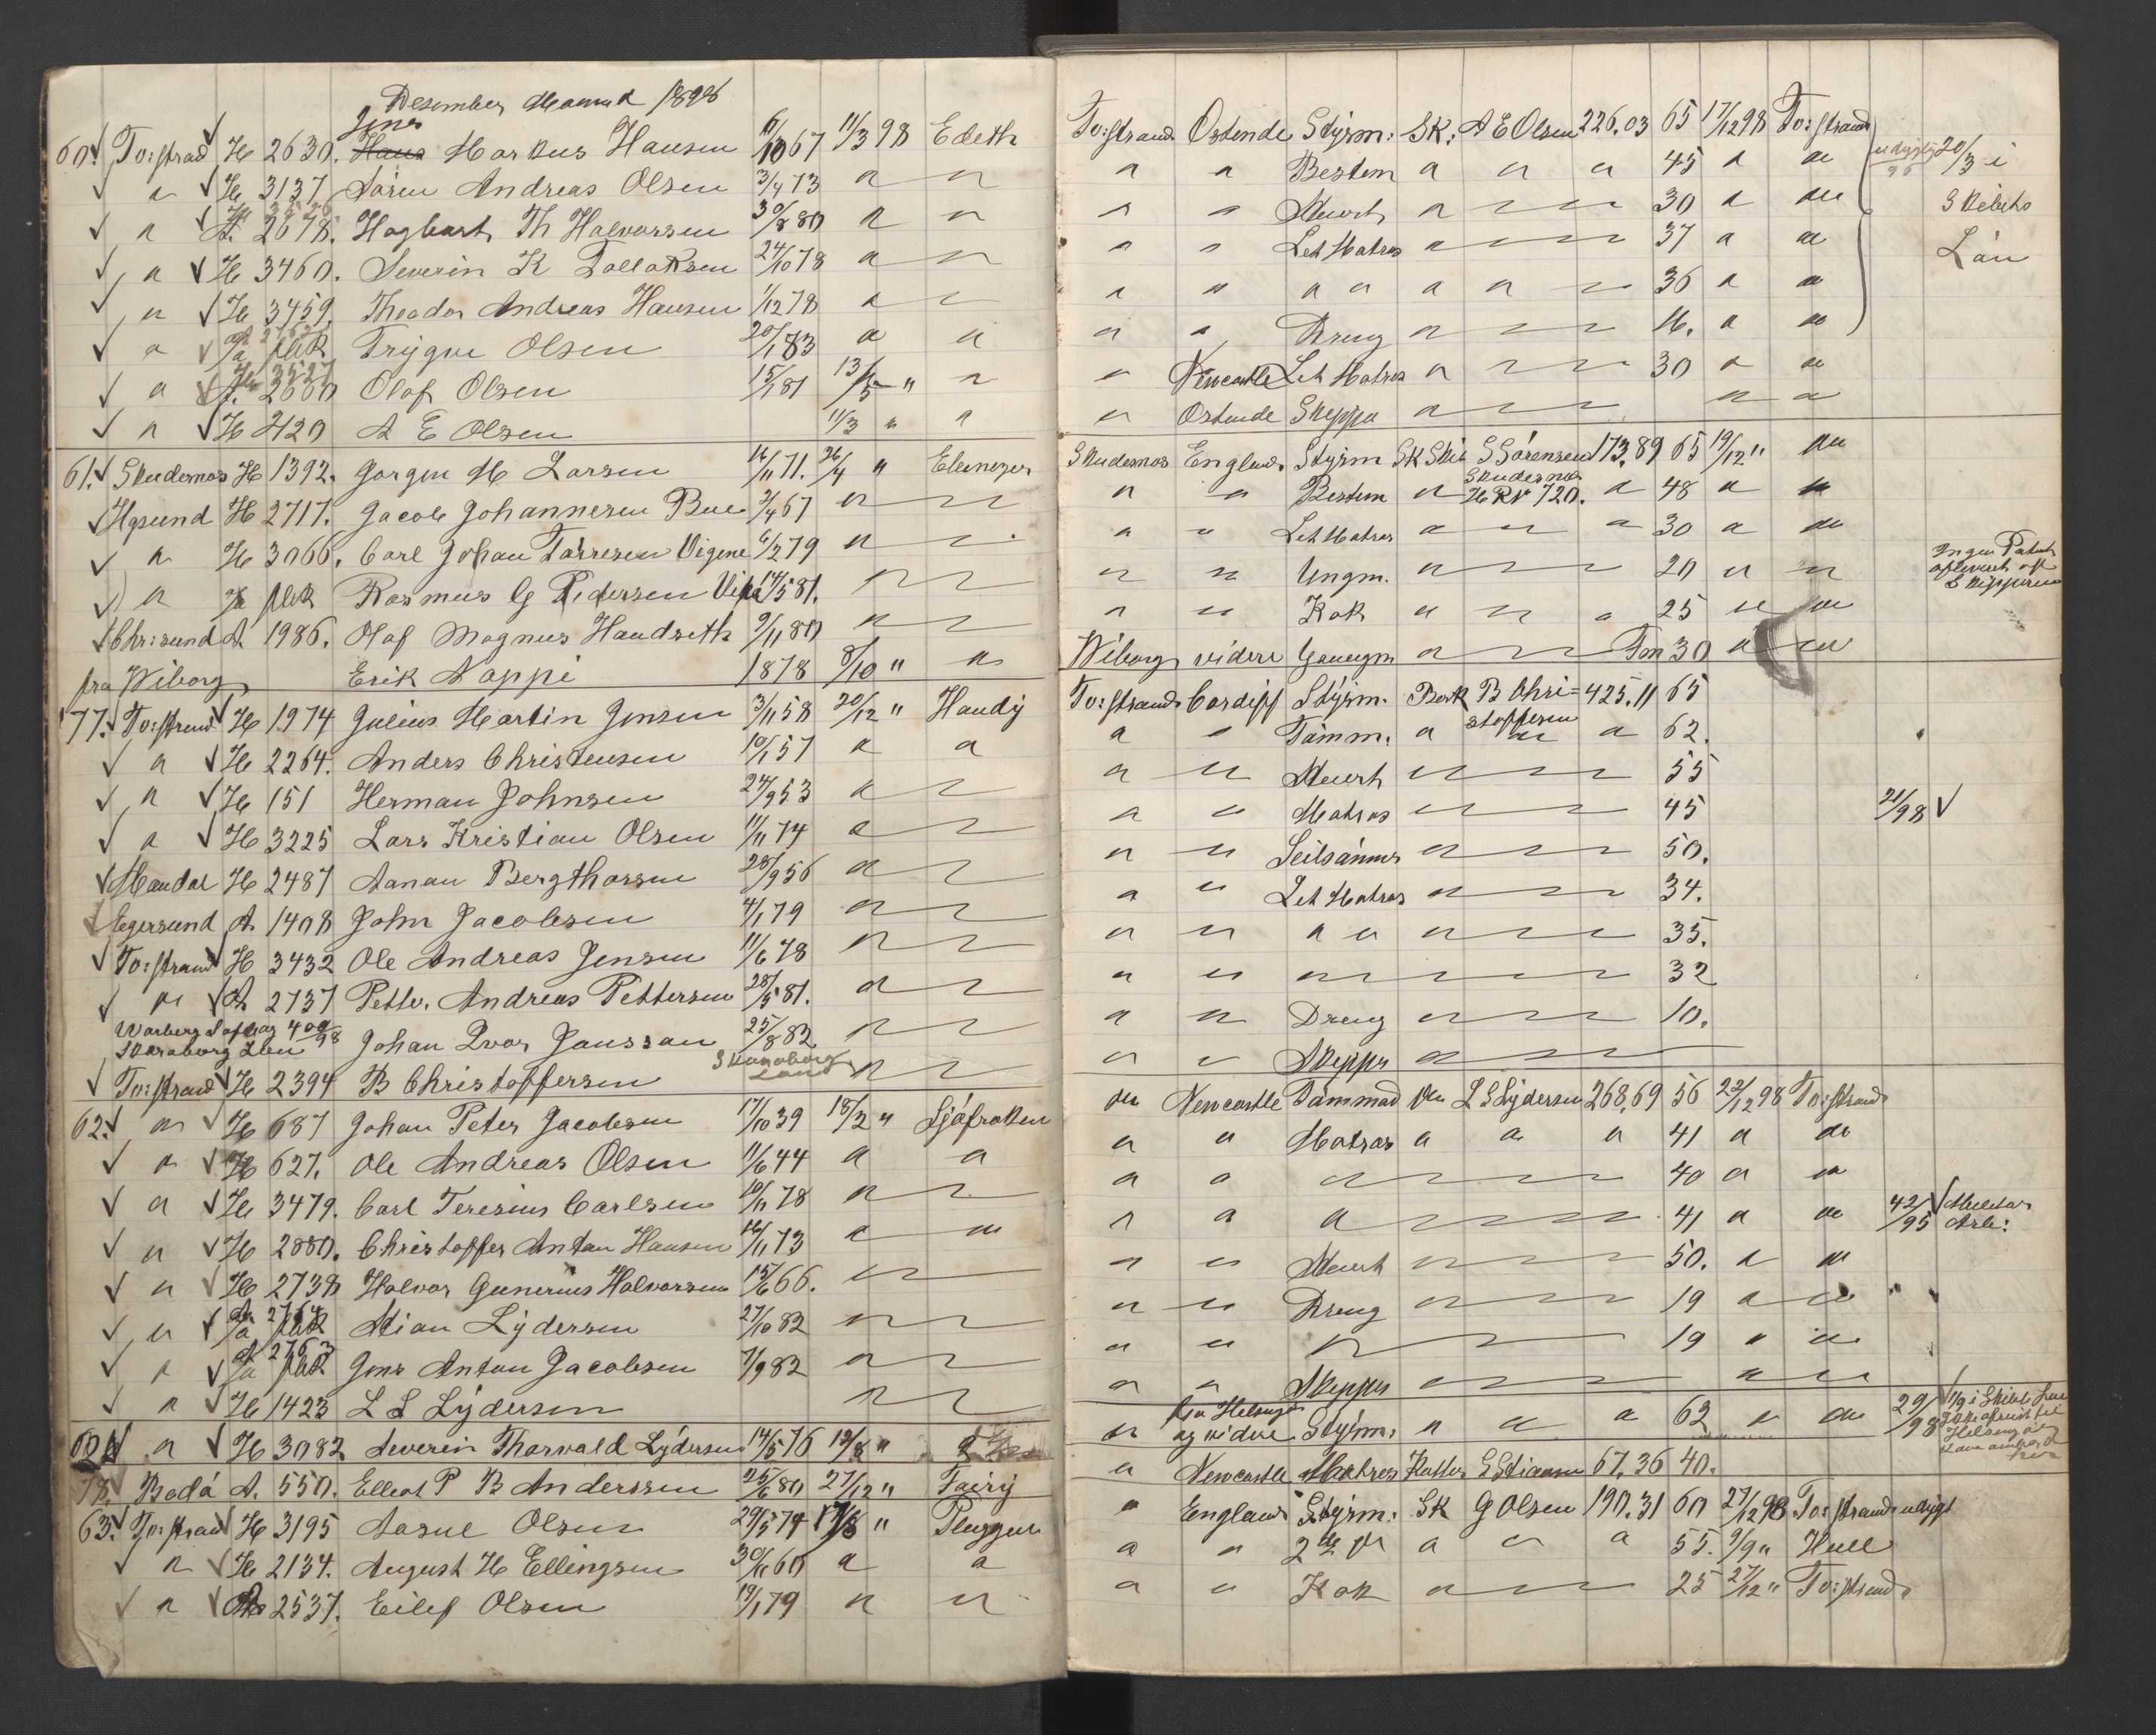 Desember Maaned 1898
Jens
60. To:strand H 2630. Hans Markus Hansen 6/10 67 11/3 98 Edeth To:strand Ostende Styrm: SK: A E Olsen 226.03 65 17/12 98 To:strand
" H 3137 Sören Andreas Olsen 3/4 73 " " " " Bestm " " " 45 " " 20/3 i
" A. 2678. Hagbart Th Halvorsen 30/8 80 " " " " Stuert " " " 30 " " Skibets
" H 3460. Severin K Tallaksen 24/10 78 " " " " Let Matros " " " 37 " " Lán
" H 3459. Theodor Andreas Hansen 1/12 78 " " " " " " " " " 36 " "
" Trygve Olsen 20/1 83 " " " " Dreng " " " 16. " "
" H 3527
A. 2600 Olaf Olsen 15/1 81 13/5 " " " Newcastle Let Matros " " " 30 " "
" H 2120 A E Olsen 11/3 " " " Ostende Skeppu " " " " "
61. Skudesnæs H 1392. Jørgen M Larsen 16/11 71. 26/4 " Ebenezer Skudesnæs England Styrm SK Skib S Sörensen 173.89 65 19/12 " "
Skudesnæs
H 2717. Jacob Johannesen Bue 2/4 67 " " " " Bestm " H Rr 720. " 48 " "
" H 3066. Carl Johan Tørresen Vigene 6/2 79 " " " " Let Matros " " " 30 " "
Ingen Patent
afleveret af
Skipperen
" Rasmus G Pedersen 14/5 81. " " " " Ungm. " " 20 " "
Chr:sund A. 1986. Olaf Magnus Handseth 9/11 80 " " " " Kok " " " 25 " "
fra Wiborg Erik Nappi 1878 8/10 " " Wiborg videre " " 30 " "
77. To:strand H 1974 Julius Martin Jensen 3/11 58 20/12 " Handy To:strand Cardiff Styrm. Bark B Chri= 425.11 65
stoffersen
" H 2264. Anders Christensen 10/1 57 " " " " Tömm. " " " 62.
" H 151 Herman Johnsen 24/9 53 " " " " Stuert " " " 55
" H 3225 Lars Kristian Olsen 11/11 74 " " " " Matros " " " 45 21/98
Mandal H 2487 Aanan Bergthorsen 28/9 56 " " " " Seilsømmer " " " 50.
Egersund A. 1408 John Jacobsen 4/1 79 " " " " Let Matros " " " 34.
To:strand H 3432 Ole Andreas Jensen 11/6 78 " " " " " " " " " 35.
" A 2737 Petter Andreas Pettersen 28/5 81. " " " " " " " " 32
Warberg 400/98
Skaraborg Län Johan Ivar Jansson 25/8 82 " " " " Dreng " " " 10.
Skaraborg
Land
To:strand H 2394 B Christoffersen " " " " Skeppu " " "
62. " H 687 Johan Peter Jacobsen 17/10 39 18/3 " Sjøfrøken " Newcastle Tömmmd L S Lydersen 268.69 56 22/12 98 To:strand
" H 627. Ole Andreas Olsen 11/6 44 " " " " Matros " " " 41 " "
" H 3479. Carl Teresius Carlsen 10/11 78 " " " " " " " 40 " "
" H 2880. Christoffer Anton Hansen 16/11 73 " " " " " " " 41 " " 42/95 Militær
" H 2738 Halvor Gunerius Halvorsen 15/6 66. " " " " Stuert " " " 50. " "
A 2764
" Stian Lydersen 27/10 82 " " " " Dreng " " " 19 " "
A 2763
" Jens Anton Jacobsen 7/9 82 " " " " " " " 19 " "
" H 1423 L S Lydersen " " " " Skeppu " " " " "
62 " H 3082 Severin Thorvald Lydersen 14/5 76 19/8 " " fra Helsingör
og videre Styrm: " " " 62 " " 29/98
78. Bodö A. 550. Elleot P B Anderssen 25/6 80 27/12 " Fairy " Newcastle Matros Kutter S Stiansen 67.36 40.
63. To:strand H 3195 Aasul Olsen 29/5 74 17/8 " " England Styrm. SK G Olsen 190.31 60 27/12 98 To:strand udygt
" H 2134. August H Ellingsen 30/11 60 " " " " 2de " " " 55. 9/9 " Hull
" 2537. Eilef Olsen 19/1 79 " " " " Kok " " " 25 27/12 " To:strand